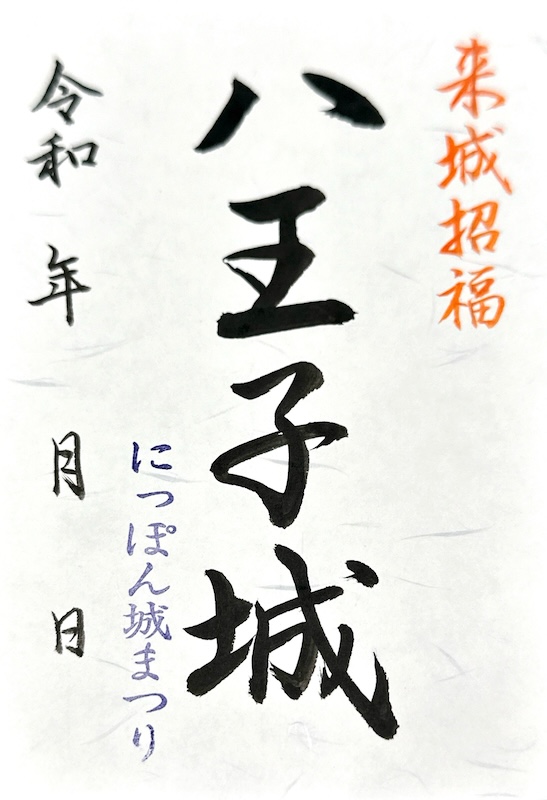 来城招福
八王子城
にっぽん城まつり
令和 年 月 日